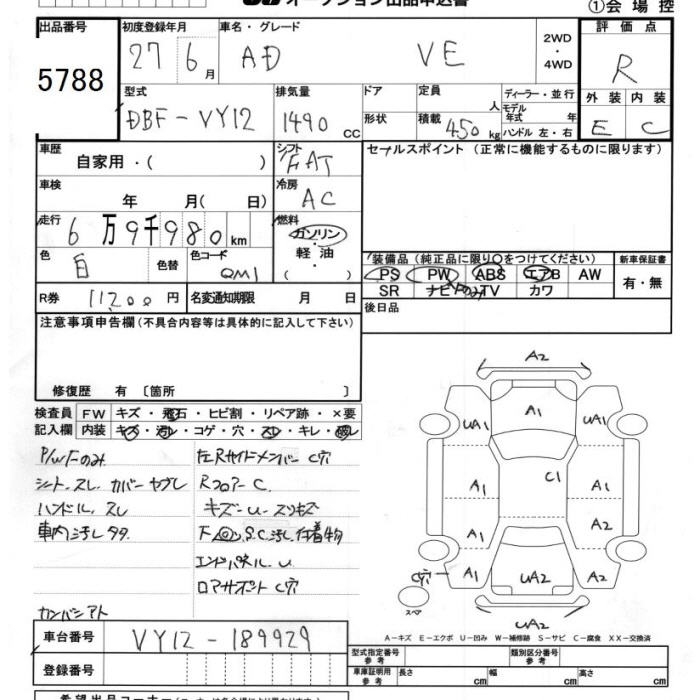 オークション出品申込書
①会場控
出品番号 初度登録年月 車名・グレード 2WD・4WD 評価点
5788 27 6月 AD VE R
型式 排気量 ドア 定員 人 ディーラー・並行 モデル年式 年 外装 内装
DBF-VY12 1490 cc 形状 積載 450 kg ハンドル 左・右 E C
車歴 自家用・( ) シフト FAT セールスポイント (正常に機能するものに限ります)
車検 年 月( 日) 冷房 AC
走行 6万9千980km 燃料 ガソリン・軽油・( )
色 白 色替 色コード QM1
装備品 (純正品に限り○をつけてください) 新車保証書
PS PW ABS エアB AW 有・無
SR ナビ TV カワ
Pのみ
R券 11200円 名変通知期限 月 日 後日品
注意事項申告欄 (不具合内容等は具体的に記入して下さい)
修復歴 有 〔箇所 〕
検査員記入欄 FW キズ・飛石・ヒビ割・リペア跡・×要
内装 キズ・汚レ・コゲ・穴・スレ・キレ・破レ
P/WFのみ
シート.スレ.カバーヤブレ
ハンドル.スレ
車内汚レタタ
カンバンアト
左Rサイドメンバー C穴
RフロアーC.
キズ-U-スリキズ
S.C.汚レ.付着物
エンドパネル.U
ロアサポートC穴
A2
A1
UA1 UA1
C1
A1 A1
A2
A1 A1
UA2
C穴
スペア
UA2
A-キズ E-エクボ U-凹み W-補修跡 S-サビ C-腐食 XX-交換済
車台番号 VY12-189929
登録番号
型式指定番号 参考 類別区分番号 参考
車庫証明用 参考 長さ cm 幅 cm 高さ cm
希望出品コーナー